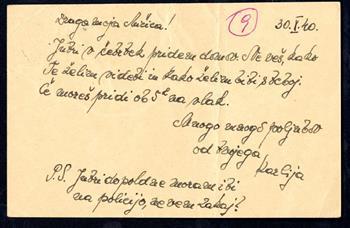 Draga moja Nušica!
9
30.I.40.
Jutri v četrtek pridem domov. Ne veš, kako
Te želim videti in kako želim biti s teboj.
Če moreš pridi ob 5h na vlak.
Mnogo mnogo poljubov
od tvojega
Karlija
P.S. Jutri dopoldne moram iti
na policijo, ne vem zakaj?